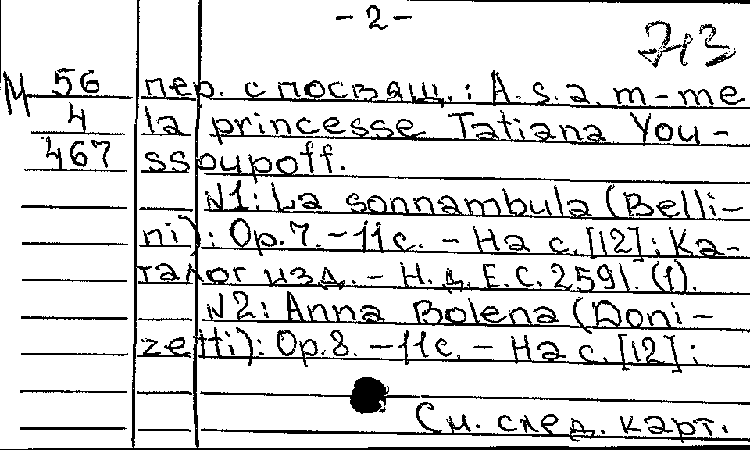 - 2 -
713
М 56 пер. с посвящ.: A. s. a. m-me
4 la princesse Tatiana You-
467 ssoupoff.
N1: La sonnambula (Belli-
ni): Op. 7. - 11 c. - На с. [12]: Ка-
талог изд. - Н. д. E. C. 2591. (1).
N2: Anna Bolena (Doni-
zetti): Op. 8. - 11 c. - На с. [12]:
См. след. карт.